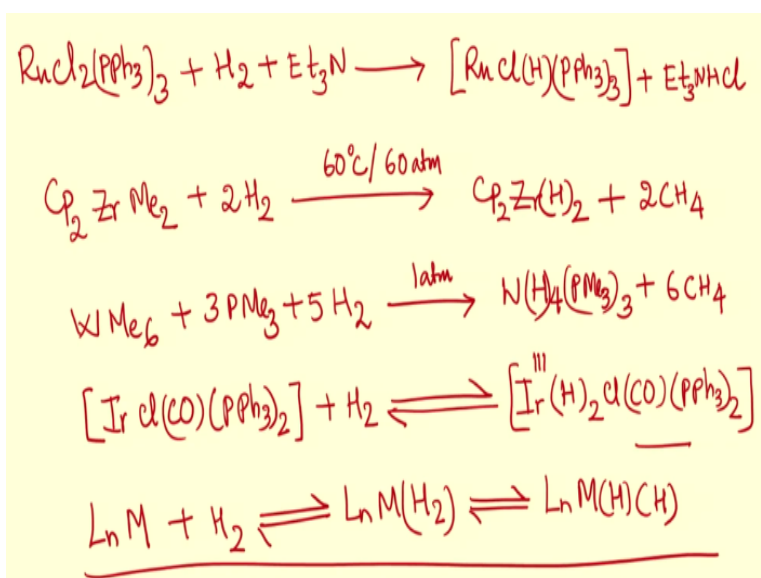 RuCl₂(PPh₃)₃ + H₂ + Et₃N ⟶ [RuCl(H)(PPh₃)₃] + Et₃NHCl
60°C/60atm
Cp₂ZrMe₂ + 2H₂ ⟶ Cp₂Zr(H)₂ + 2CH₄
1atm
WMe₆ + 3PMe₃ + 5H₂ ⟶ W(H)₄(PMe₃)₃ + 6CH₄
[IrCl(CO)(PPh₃)₂] + H₂ ⇌ [Irᴵᴵᴵ(H)₂Cl(CO)(PPh₃)₂]
LnM + H₂ ⇌ LnM(H₂) ⇌ LnM(H)(H)